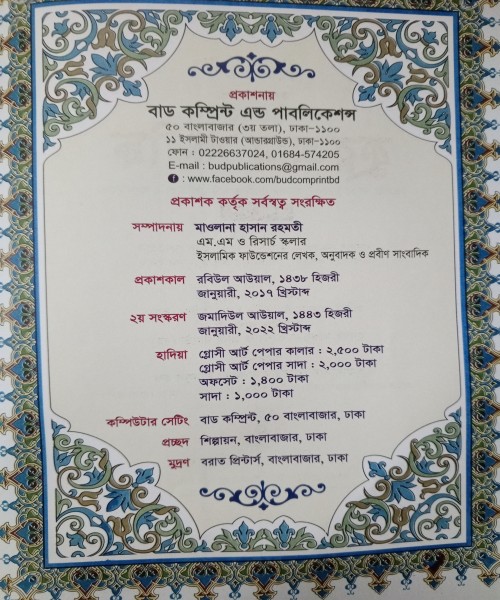 প্রকাশনায়
বাড কম্প্রিন্ট এন্ড পাবলিকেশন্স
৫০ বাংলাবাজার (৩য় তলা), ঢাকা-১১০০
১১ ইসলামী টাওয়ার (আন্ডারগ্রাউন্ড), ঢাকা-১১০০
ফোন : 02226637024, 01684-574205
E-mail : budpublications@gmail.com
: www.facebook.com/budcomprintbd
প্রকাশক কর্তৃক সর্বস্বত্ব সংরক্ষিত
সম্পাদনায় মাওলানা হাসান রহমতী
এম.এম ও রিসার্চ স্কলার
ইসলামিক ফাউন্ডেশনের লেখক, অনুবাদক ও প্রবীণ সাংবাদিক
প্রকাশকাল রবিউল আউয়াল, ১৪৩৮ হিজরী
জানুয়ারী, ২০১৭ খ্রিস্টাব্দ
২য় সংস্করণ জমাদিউল আউয়াল, ১৪৪৩ হিজরী
জানুয়ারী, ২০২২ খ্রিস্টাব্দ
হাদিয়া গ্লোসী আর্ট পেপার কালার : ২,৫০০ টাকা
গ্লোসী আর্ট পেপার সাদা : ২,০০০ টাকা
অফসেট : ১,৪০০ টাকা
সাদা : ১,০০০ টাকা
কম্পিউটার সেটিং বাড কম্প্রিন্ট, ৫০ বাংলাবাজার, ঢাকা
প্রচ্ছদ শিল্পায়ন, বাংলাবাজার, ঢাকা
মুদ্রণ বরাত প্রিন্টার্স, বাংলাবাজার, ঢাকা